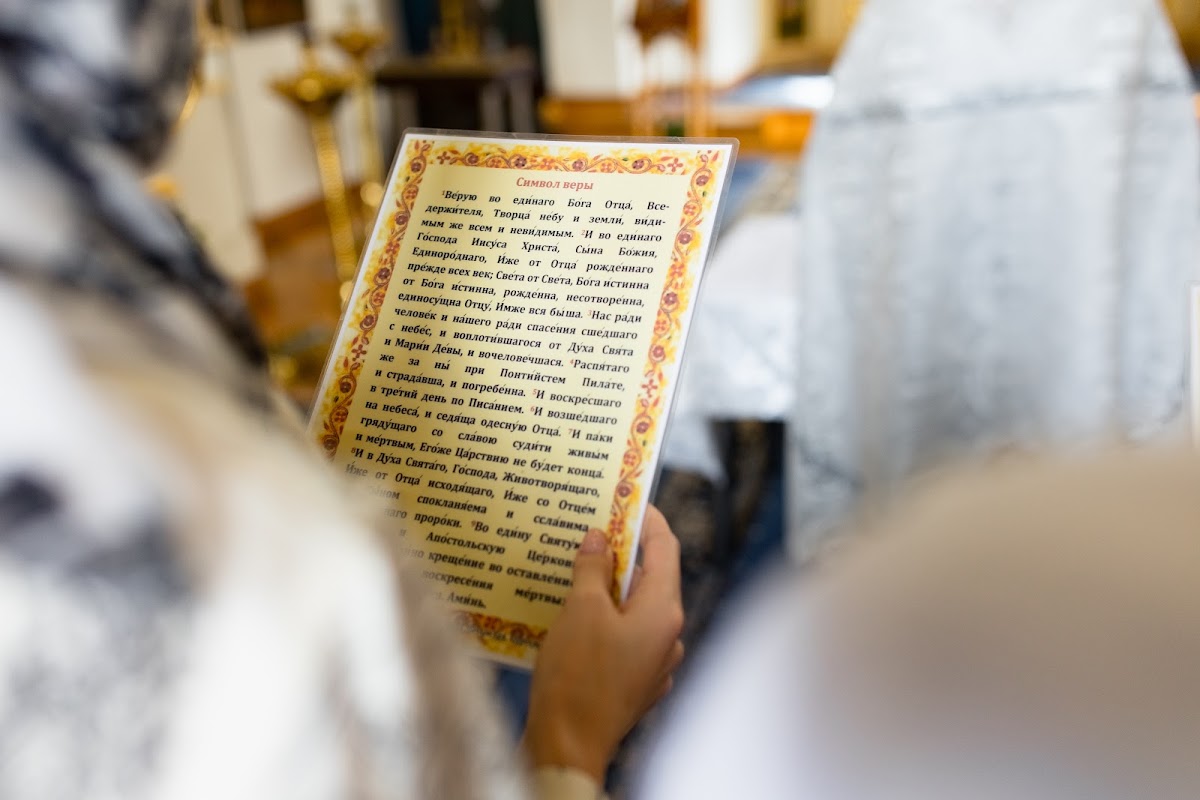 Символ веры
¹Ве́рую во еди́наго Бо́га Отца́, Все-
держи́теля, Творца́ не́бу и земли́, ви́ди-
мым же всем и неви́димым. ²И во еди́наго
Го́спода Иису́са Христа́, Сы́на Бо́жия,
Единоро́днаго, И́же от Отца́ рожде́ннаго
пре́жде всех век; Све́та от Све́та, Бо́га и́стинна
от Бо́га и́стинна, рожде́нна, несотворе́нна,
единосу́щна Отцу́, И́мже вся бы́ша. ³Нас ра́ди
челове́к и на́шего ра́ди спасе́ния сше́дшаго
с небе́с, и воплоти́вшагося от Ду́ха Свя́та
и Мари́и Де́вы, и вочелове́чшася. ⁴Распя́таго
же за ны́ при Понти́йстем Пила́те,
и страда́вша, и погребе́нна. ⁵И воскре́сшаго
в тре́тий день по Писа́нием. ⁶И возше́дшаго
на небеса́, и седя́ща одесну́ю Отца́. ⁷И па́ки
гряду́щаго со сла́вою суди́ти живы́м
и ме́ртвым, Его́же Ца́рствию не бу́дет конца́.
⁸И в Ду́ха Свята́го, Го́спода, Животворя́щаго,
И́же от Отца́ исходя́щаго, И́же со Отце́м
спокланя́ема и ссла́вима
проро́ки. ⁹Во еди́ну Святу́ю
Апо́стольскую Це́рковь
креще́ние во оставле́ние
воскресе́ния ме́ртвых
Ами́нь.